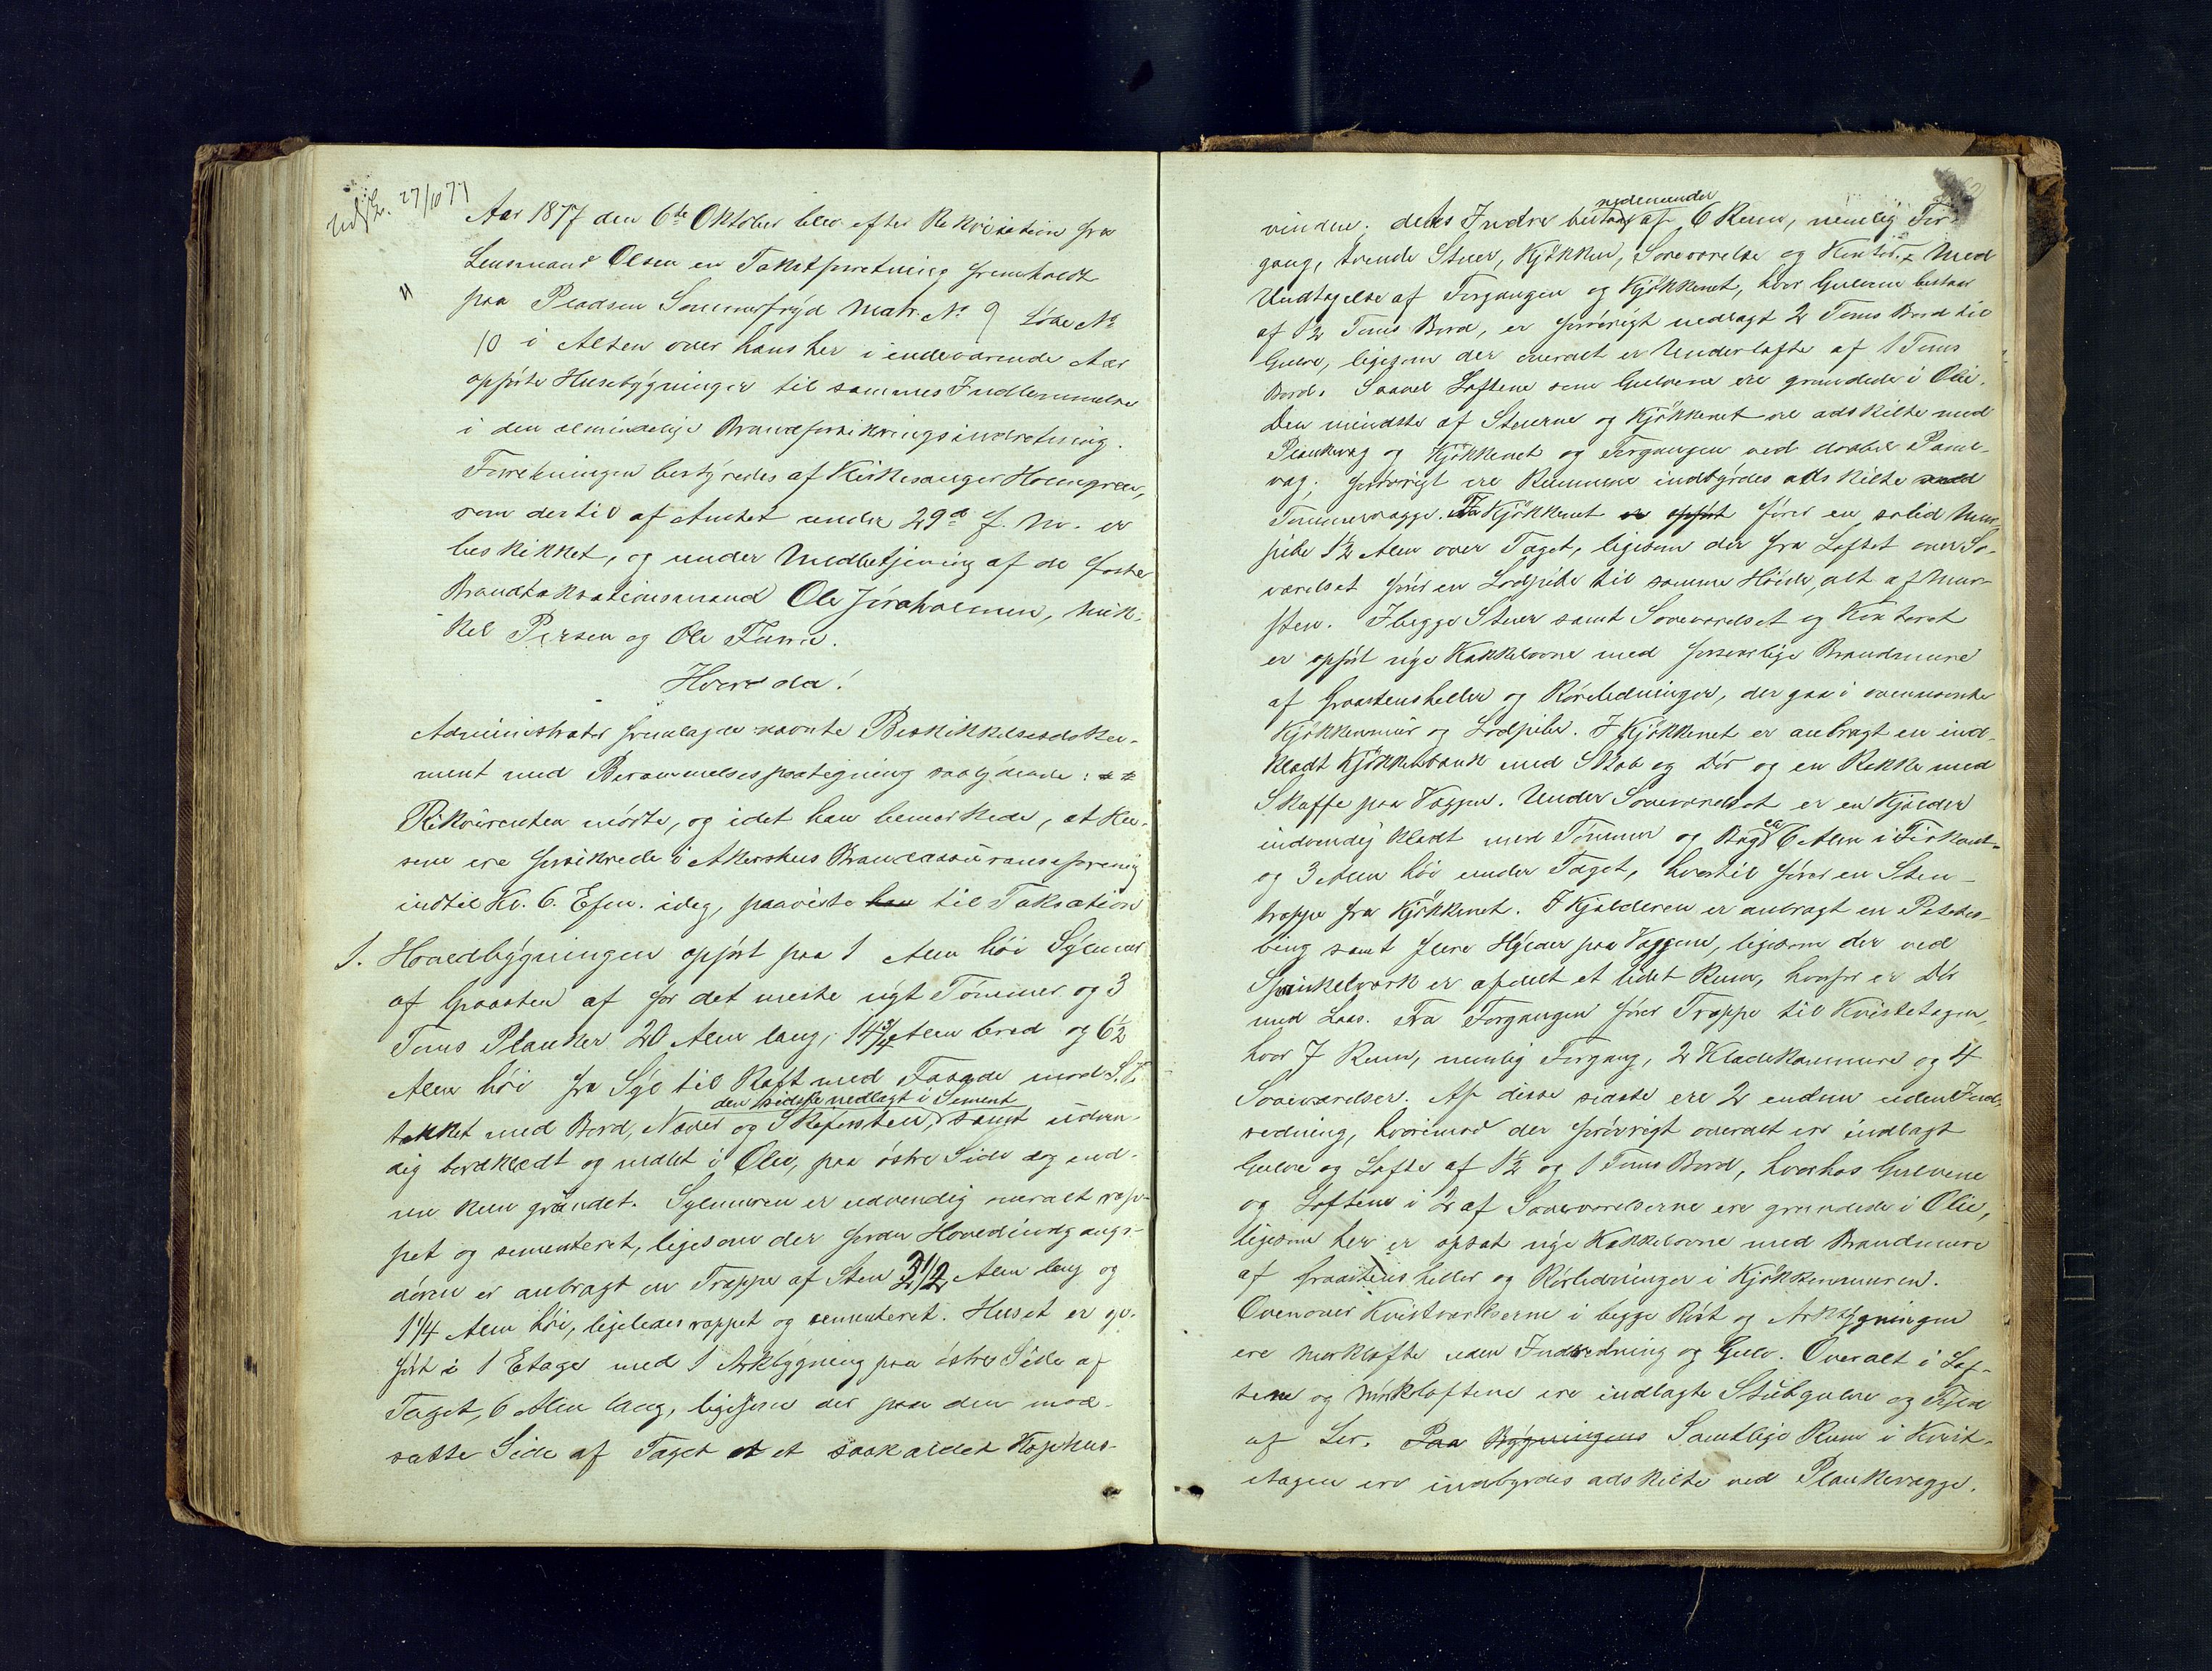 Udf. 27/10 77
Aar 1877 den 6te Oktober blev efter Rekvisition fra
Lensmand Olsen en Takstforretning fremholdt
paa Pladsen Sommerfryd Matr. No 9 Løbe No
10 i Alten over hans her i indeværende Aar
opførte Husebygninger til sammes Indlemmelse
i den almindelige Brandforsikringsindretning.
Forretningen bestyredes af Kirkesanger Holmgren,
som dertil af Amtet under 29de f. M. er
beskikket, og under Medbetjening af de faste
Brandtaksationsmænd Ole Jøraholmen, Mik-
kel Persen og Ole Thime.
Hvorda!
Administrator fremlagde nævnte Beskikkelsesdoku-
ment med Berammelsespaategning saalydende:
Rekvirenten mødte, og idet han bemærkede, at Hu-
sene ere forsikrede i Akershus Brandassuranseforening
indtil Kl. 6. Efm. idag, paaviste han til Taksation
1. Hovedbygningen opført paa 1 Alen høi Sylmur
af Graasten af for det meste nyt Tømmer og 3
Toms Planker 20 Alen lang, 14 3/4 Alen bred og 6 1/2
Alen høi fra Syl til Raft med Fasade mod S.V.
den sidste nedlagt i Sement
tækket med Bord, Næver og Skifersten, samt udven-
dig bordklædt og malet i Olie, paa østre Side dog end-
nu kun grundet. Sylmuren er udvendig overalt rap-
pet og sementeret, ligesom der foran Hovedindgangs-
døren er anbragt en Trappe af Sten 3 1/2 Alen lang og
1 1/4 Alen høi, ligeledes rappet og sementeret. Huset er op-
ført i 1 Etage med 1 Arkbygning paa østre Side af
Taget, 6 Alen lang, ligesom der paa den mod-
satte Side af Taget et saakaldet Kaphus-
nedenunder
vindue; dets Indre bestaar af 6 Rum, nemlig For-
gang, tvende Stuer, Kjøkken, Soveværelse og Kontor. Med
Undtagelse af Forgangen og Kjøkkenet, hvor Gulvene bestaar
af 1 1/2 Toms Bord, er forøvrigt nedlagt 2 Toms Bord til
Gulve, ligesom der overalt er Underlofte af 1 Toms
Bord. Saavel Loftene som Gulvene ere grundede i Olie.
Den mindste af Stuerne og Kjøkkenet ere adskilte med
Plankevæg og Kjøkkenet og Forgangen ved dobbel Pane-
væg; forøvrigt ere Rummene indbyrdes adskilte med
Tømmervægge. Fra Kjøkkenet er opført fører en solid Mur-
pibe 1 1/2 Alen over Taget, ligesom der fra Loftet over So-
værelset fører en Lodpibe til samme Høide, alt af Mur-
sten. I begge Stuer samt Soveværelset og Kontoret
er opført nye Kakkelovne med forsvarlige Brandmure
af Graastensheller og Rørledninger, der gaa i ovennævnte
Kjøkkenmur og Lodpibe. I Kjøkkenet er anbragt en ind-
klædt Kjøkkenbænk med Skab og Dør og en Række med
Skuffe paa Væggen. Under Soveværelset er en Kjælder
indvendig klædt med Tømmer og Bagd ca 6 Alen i Firkant
og 3 Alen høi under Taget, hvortil fører en Sten-
trappe fra Kjøkkenet. I Kjælderen er anbragt en Potetes-
bing samt flere Hylder paa Væggene, ligesom der ved
Sprinkelværk er afdelt et lidet Rum, hvorfor er Dør
med Laas. Fra Forgangen fører Trappe til Kvistetagen,
hvor 7 Rum, nemlig Forgang, 2 Klædekammere og 4
Soveværelser. Af disse sidste ere 2 endnu uden Ind-
redning, hvorimod der forøvrigt overalt ere indlagt
Gulve og Lofte af 1 1/2 og 1 Toms Bord, hvorhos Gulvene
og Loftene i 2 af Soveværelserne ere grundede i Olie,
ligesom her er opsat nye Kakkelovne med Brandmure
af Graastensheller og Rørledninger i Kjøkkenmuren.
Ovenover Kvistværelserne i begge Røst og Arkbygningen
ere Mørklofte uden Indredning og Gulv. Overalt i Lof-
tene og Mørkloftene ere indlagte Stubgulve og Fyld
af Ler. Paa Bygningens Samtlige Rum i Kvist-
etagen ere indbyrdes adskilte ved Plankevægge.